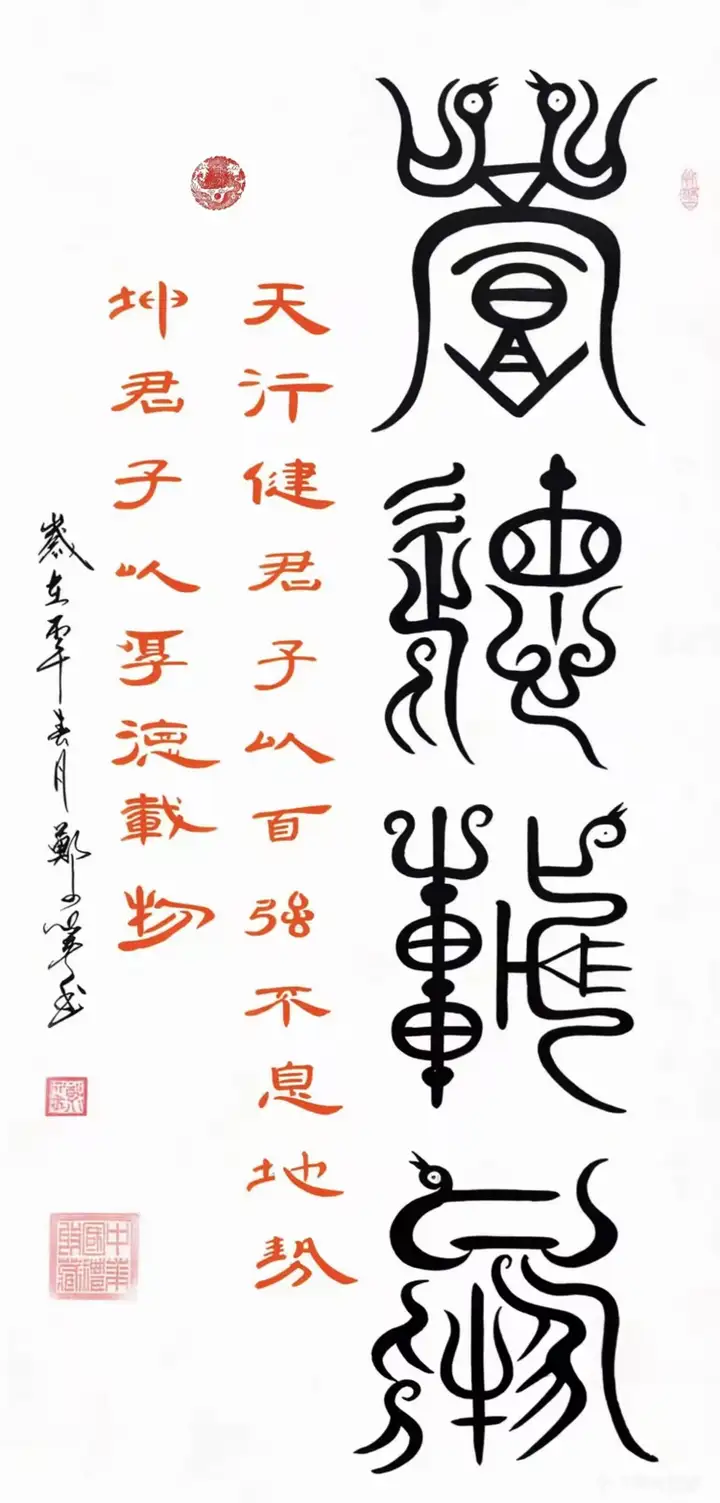 厚德載物
天行健君子以自強不息地勢
坤君子以厚德載物
歲在春月鄭
中華國禮收藏